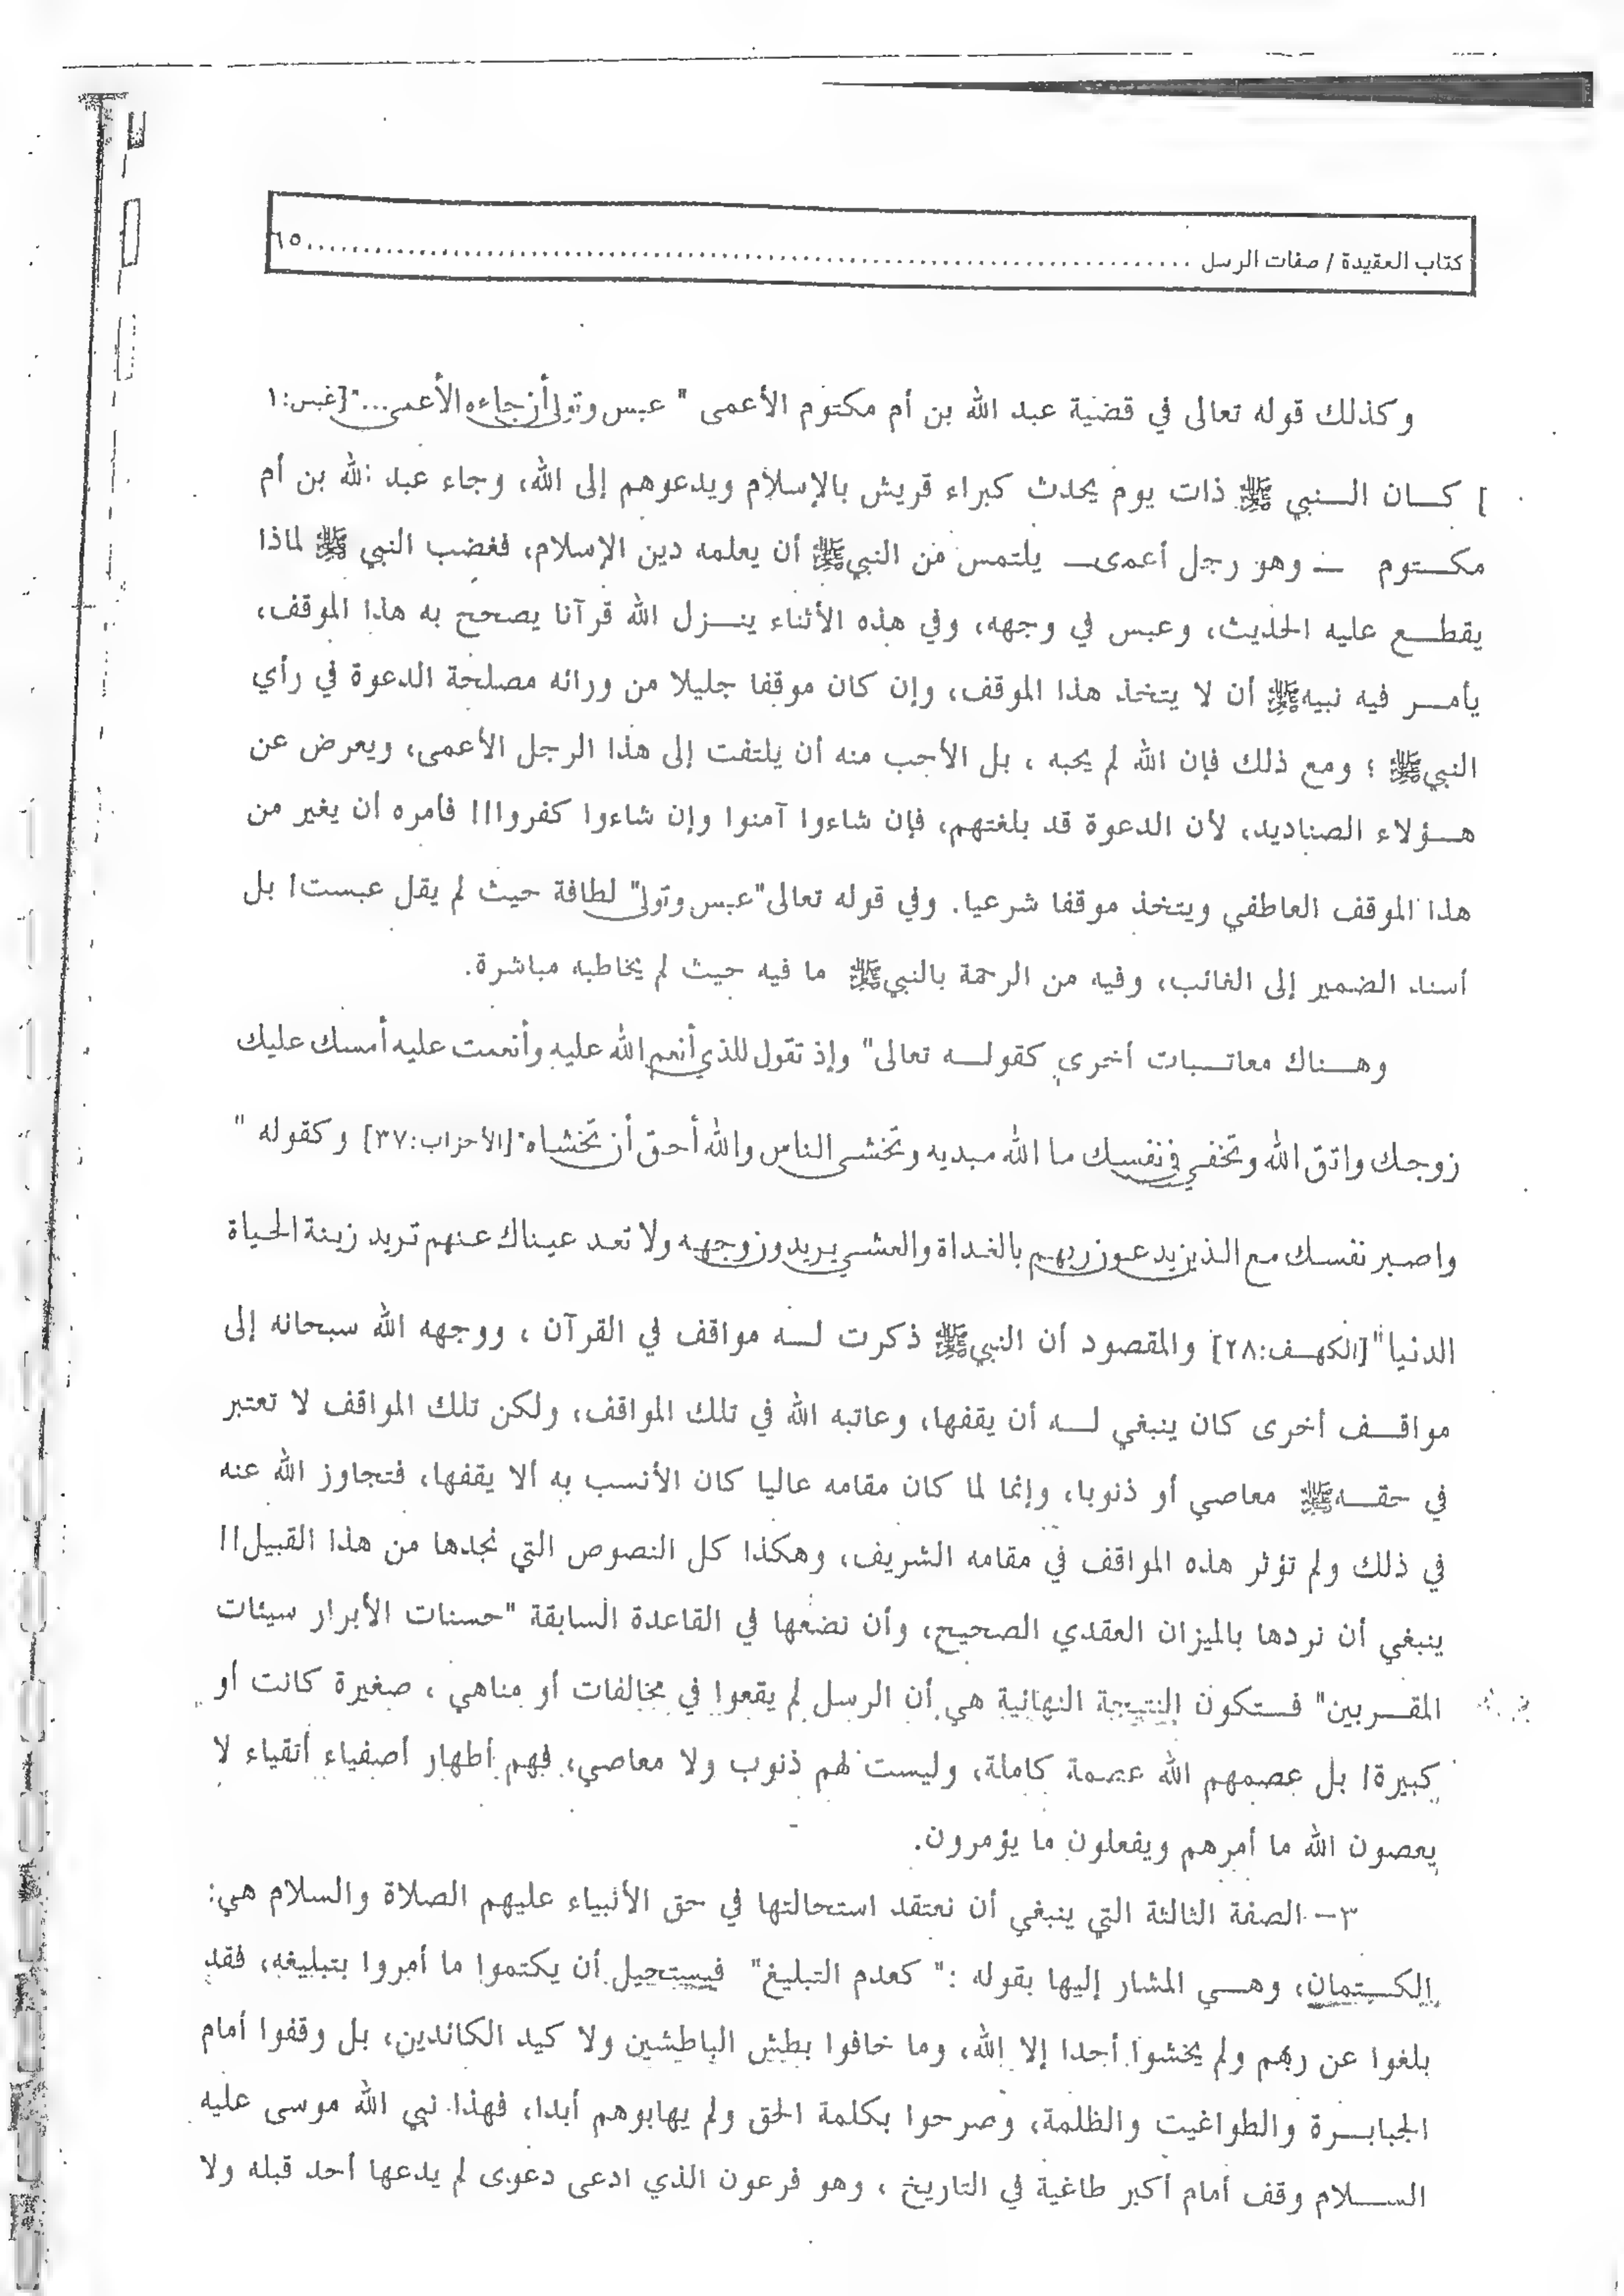 كتاب العقيدة / صفات الرسل ........................................ ٦٥
وكذلك قوله تعالى في قضية عبد الله بن أم مكتوم الأعمى " عبس وتولى أن جاءه الأعمى..." [عبس:١
] كان النبي ﷺ ذات يوم يحدث كبراء قريش بالإسلام ويدعوهم إلى الله، وجاء عبد الله بن أم
مكتوم – وهو رجل أعمى– يلتمس من النبي ﷺ أن يعلمه دين الإسلام، فغضب النبي ﷺ لماذا
يقطع عليه الحديث، وعبس في وجهه، وفي هذه الأثناء ينزل الله قرآنا يصحح به هذا الموقف،
يأمر فيه نبيه ﷺ أن لا يتخذ هذا الموقف، وإن كان موقفا جليلا من ورائه مصلحة الدعوة في رأي
النبي ﷺ ؛ ومع ذلك فإن الله لم يحبه ، بل الأحب منه أن يلتفت إلى هذا الرجل الأعمى، ويعرض عن
هؤلاء الصناديد، لأن الدعوة قد بلغتهم، فإن شاءوا آمنوا وإن شاءوا كفروا!! فأمره أن يغير من
هذا الموقف العاطفي ويتخذ موقفا شرعيا. وفي قوله تعالى "عبس وتولى" لطافة حيث لم يقل عبست! بل
أسند الضمير إلى الغائب، وفيه من الرحمة بالنبي ﷺ ما فيه حيث لم يخاطبه مباشرة.
وهناك معاتبات أخرى كقوله تعالى" وإذ تقول للذي أنعم الله عليه وأنعمت عليه أمسك عليك
زوجك واتق الله وتخفي في نفسك ما الله مبديه وتخشى الناس والله أحق أن تخشاه" [الأحزاب:٣٧] وكقوله "
واصبر نفسك مع الذين يدعون ربهم بالغداة والعشي يريدون وجهه ولا تعد عيناك عنهم تريد زينة الحياة
الدنيا" [الكهف:٢٨] والمقصود أن النبي ﷺ ذكرت له مواقف في القرآن ، ووجهه الله سبحانه إلى
مواقف أخرى كان ينبغي له أن يقفها، وعاتبه الله في تلك المواقف، ولكن تلك المواقف لا تعتبر
في حقه ﷺ معاصي أو ذنوبا، وإنما لما كان مقامه عاليا كان الأنسب به ألا يقفها، فتجاوز الله عنه
في ذلك ولم تؤثر هذه المواقف في مقامه الشريف، وهكذا كل النصوص التي نجدها من هذا القبيل!!
ينبغي أن نردها بالميزان العقدي الصحيح، وأن نضعها في القاعدة السابقة "حسنات الأبرار سيئات
المقربين" فستكون النتيجة النهائية هي أن الرسل لم يقعوا في مخالفات أو مناهي ، صغيرة كانت أو
كبيرة! بل عصمهم الله عصمة كاملة، وليست لهم ذنوب ولا معاصي، فهم أطهار أصفياء أتقياء لا
يعصون الله ما أمرهم ويفعلون ما يؤمرون.
٣– الصفة الثالثة التي ينبغي أن نعتقد استحالتها في حق الأنبياء عليهم الصلاة والسلام هي:
الكتمان، وهي المشار إليها بقوله :" كعدم التبليغ" فيستحيل أن يكتموا ما أمروا بتبليغه، فقد
بلغوا عن ربهم ولم يخشوا أحدا إلا الله، وما خافوا بطش الباطشين ولا كيد الكائدين، بل وقفوا أمام
الجبابرة والطواغيت والظلمة، وصرحوا بكلمة الحق ولم يهابوهم أبدا، فهذا نبي الله موسى عليه
السلام وقف أمام أكبر طاغية في التاريخ ، وهو فرعون الذي ادعى دعوى لم يدعها أحد قبله ولا